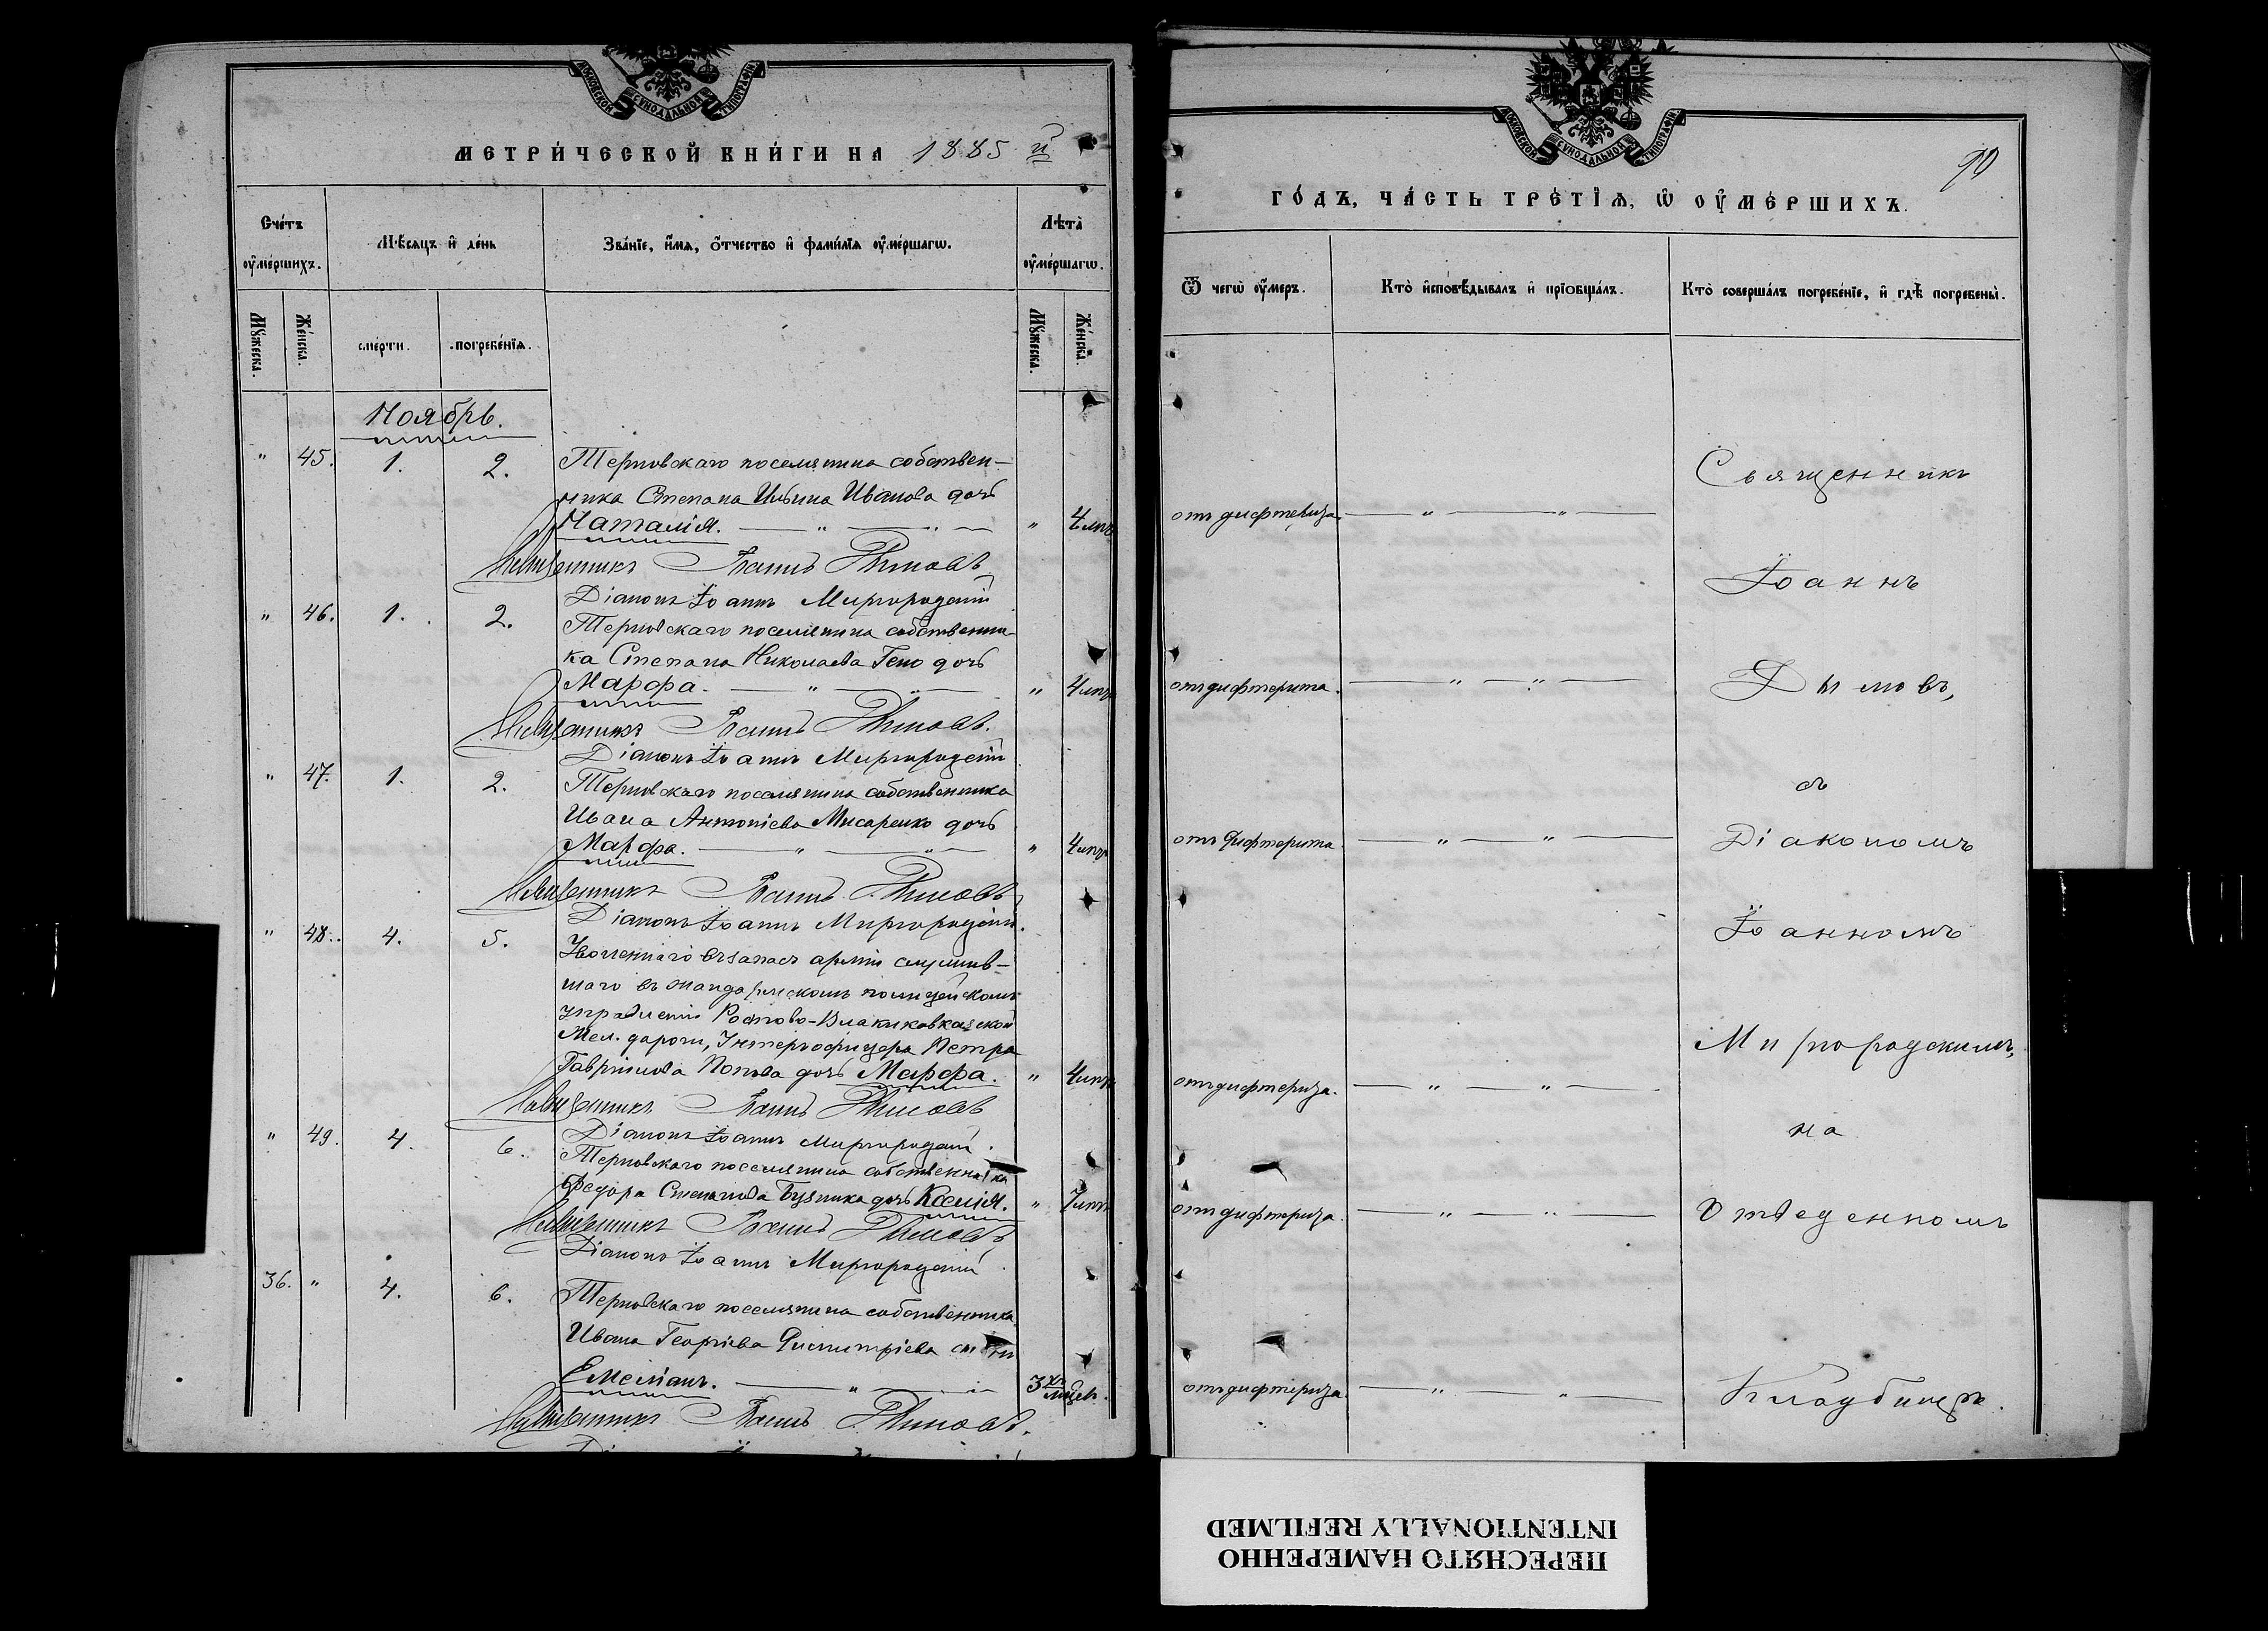 МОСКОВСКОЙ СѴНОДАЛЬНОЙ ТИПОГРАФІИ
МЕТРИ́ЧЕСКОЙ КНИ́ГИ НА 1885 й
Сче́тъ ᲂу҆ме́ршихъ.
Мѣ́сяцъ и҆ де́нь
Зва́нїе, и҆́мѧ, ѻ҆́тчество и҆ фами́лїѧ ᲂу҆ме́ршагѡ.
Лѣта̀ ᲂу҆ме́ршагѡ.
Мꙋ́жеска.
Же́нска.
сме́рти.
погребе́нїѧ.
Мꙋ́жеска.
Же́нска.
Ноябрь.
" 45. 1. 2. Терновскаго поселянина собствен-
ника Степана Ильина Иванова дочь
Наталія. — " — " — " 4 лѣтъ
Священникъ Іоаннъ Дымовъ
Діаконъ Іоаннъ Миргородскій
" 46. 1. 2. Терновскаго поселянина собственни-
ка Степана Николаева Гено дочь
Марфа. — " — " — " 4 лѣтъ
Священникъ Іоаннъ Дымовъ.
Діаконъ Іоаннъ Миргородскій
" 47. 1. 2. Терновскаго поселянина собственника
Ивана Антоніева Писаренко дочь
Марфа. — " — " — " 4 лѣтъ
Священникъ Іоаннъ Дымовъ
Діаконъ Іоаннъ Миргородскій.
" 48. 4. 5. Уволеннаго въ запасъ арміи служив-
шаго въ жандармскомъ полицейскомъ
управленіи Ростово-Владикавказской
Жел. дороги, Унтеръ офицера Петра
Гаврилова Попова дочь Марфа. " 4 лѣтъ
Священникъ Іоаннъ Дымовъ
Діаконъ Іоаннъ Миргородскій.
" 49. 4. 6. Терновскаго поселянина собственника
Федора Степанова Бузника дочь Ксенія. " 7 лѣтъ
Священникъ Іоаннъ Дымовъ
Діаконъ Іоаннъ Миргородскій.
36. " 4. 6. Терновскаго поселянина собственника
Ивана Георгіева Димитріева сынъ
Емеліанъ. — " — " — 3хъ мѣсец.
Священникъ Іоаннъ Дымовъ.
МОСКОВСКОЙ СѴНОДАЛЬНОЙ ТИПОГРАФІИ
90
ГО́ДЪ, ЧА́СТЬ ТРЕ́ТЇѦ, Ѡ҆ ОУ҆МЕ́РШИХЪ.
Ѿ чегѡ̀ ᲂу҆́меръ.
Кто̀ и҆сповѣ́дывалъ и҆ прїѻбща́лъ.
Кто̀ соверша́лъ погребе́нїе, и҆ гдѣ̀ погребены̀.
Священникъ
отъ дифтериза. — " — " —
Іоаннъ
отъ дифтерита. — " — " — Дымовъ,
съ
отъ дифтерита — " — " — Діакономъ
Іоанномъ
Миргородскимъ,
отъ дифтериза. — " — " —
на
отъ дифтериза. — " — " — Отведенномъ
отъ дифтериза — " — " — Кладбищѣ.
ПЕРЕСНЯТО НАМЕРЕННО
INTENTIONALLY REFILMED